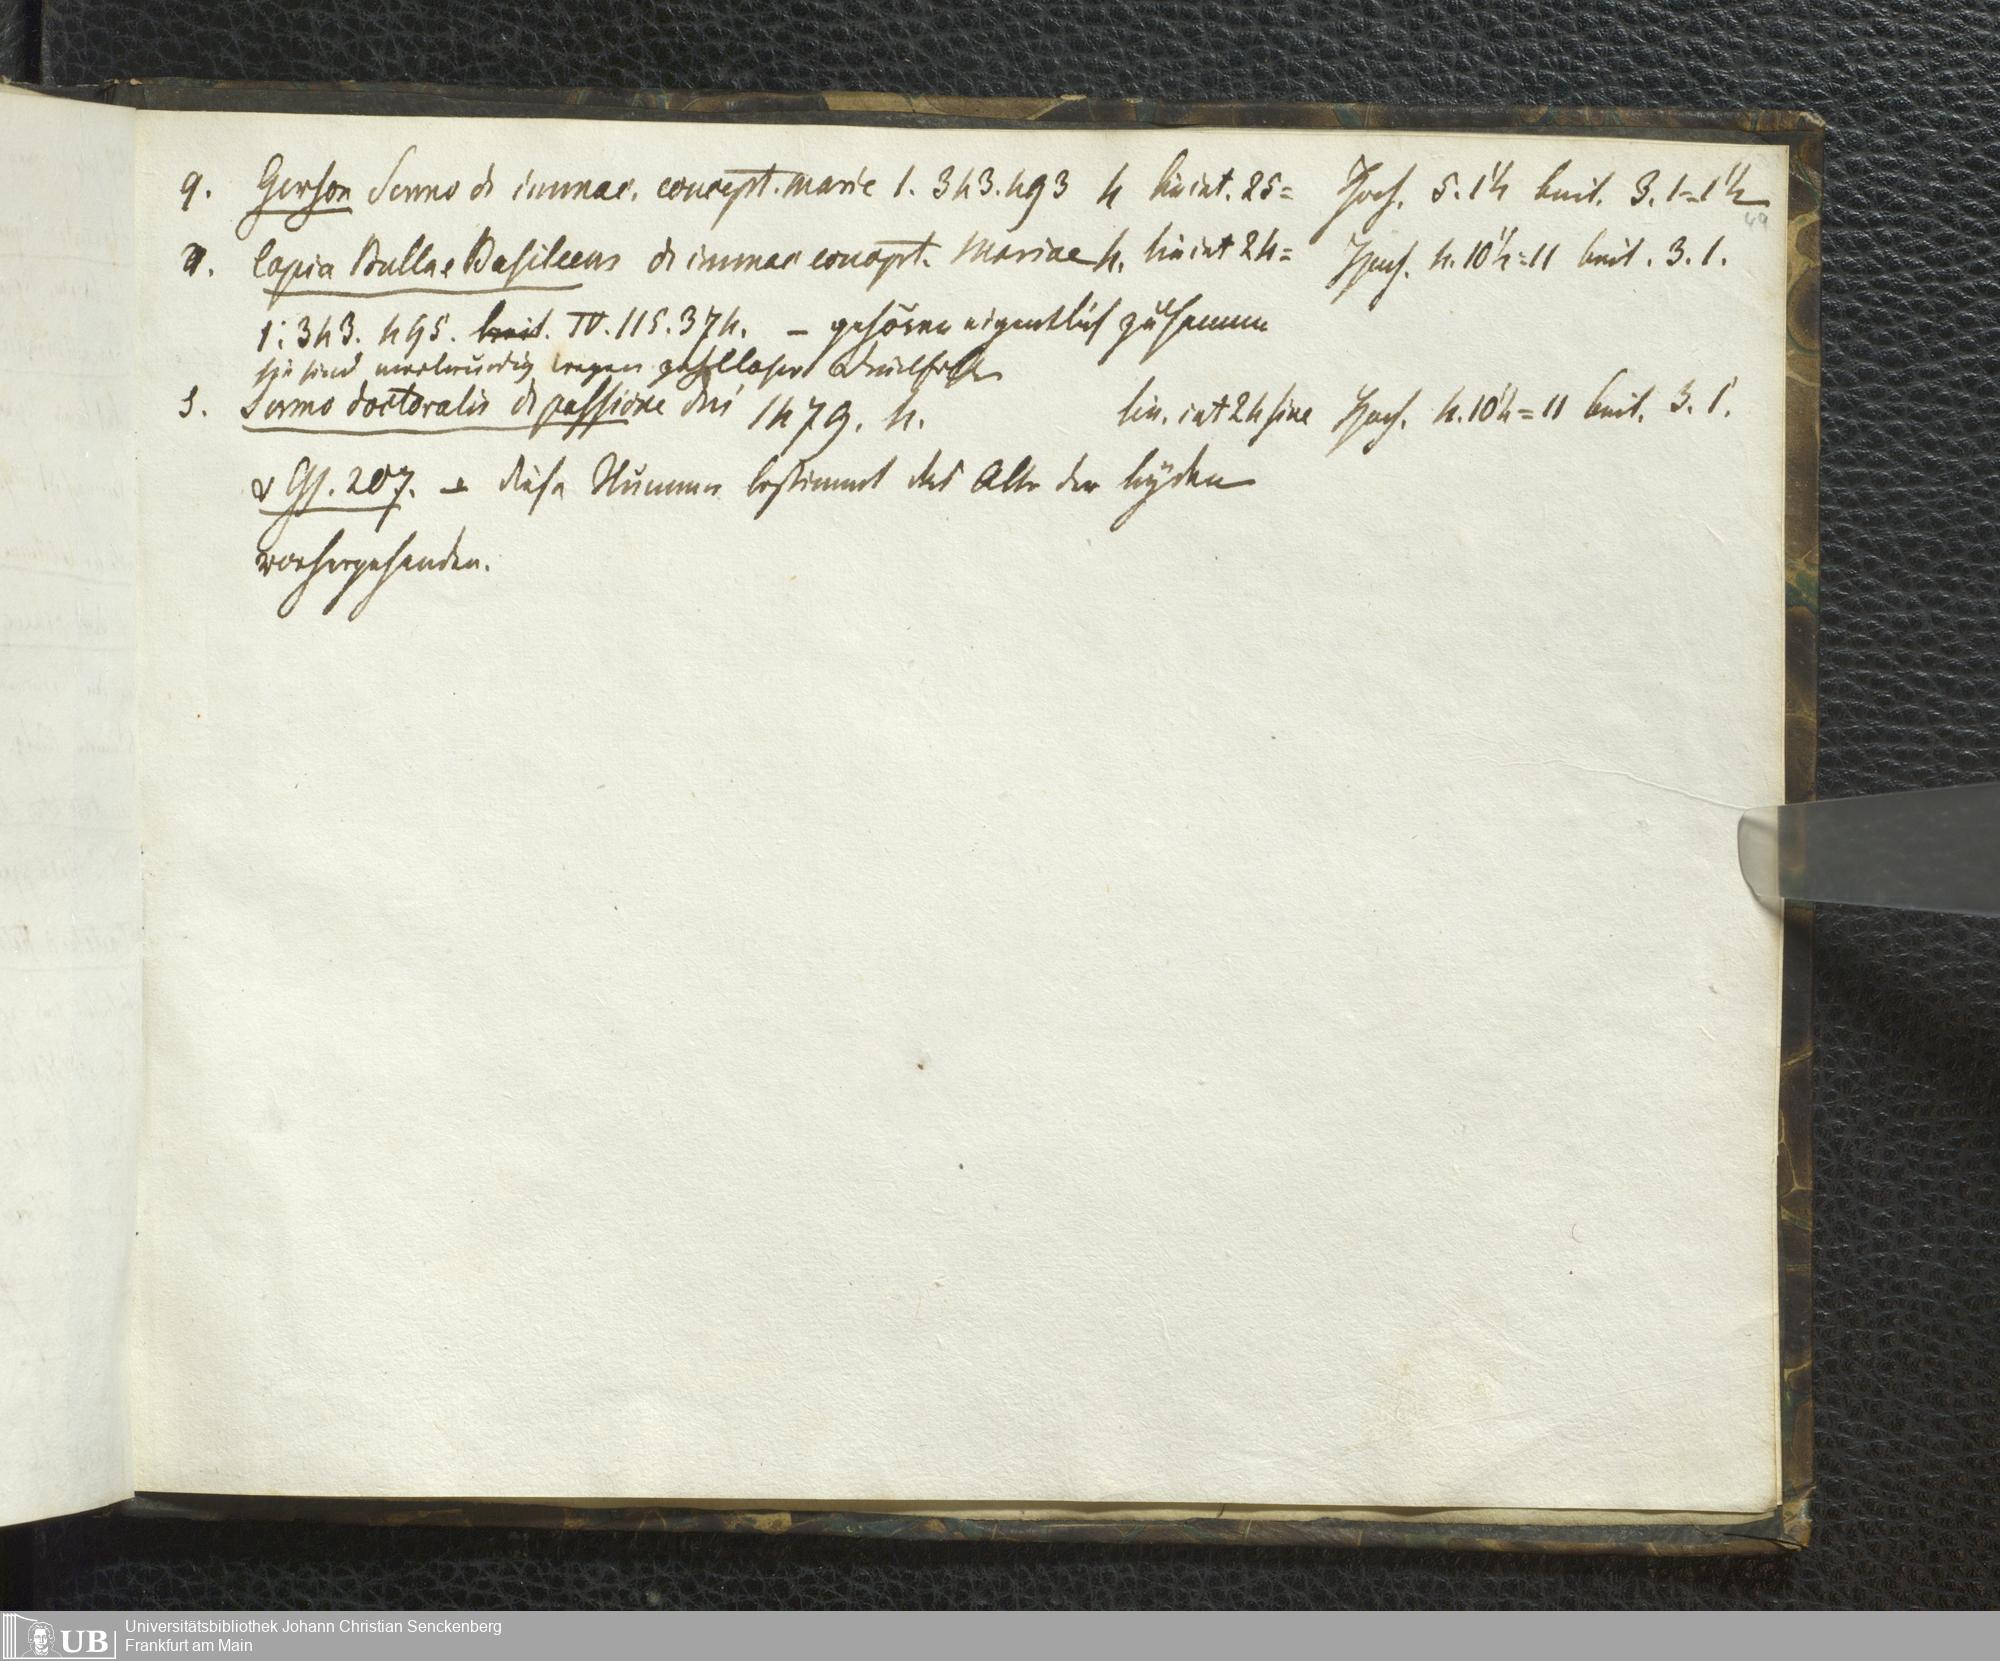 q. Gerson Sermo de immac. concept. marie 1. 343. 493 4 lin int. 25 = Hoch. 5. 1½ breit. 3. 1 = 1½
49
r. Copia Bullae Basileens de immac concept. Mariae 4. lin int 24 = Hoch. 4. 10½ = 11 breit. 3. 1.
1. 343. 495. IV. 115. 374. – gehören eigentlich zusammen
sie sind merkwürdig wegen
s. Sermo doctoralis de passione dni 1479. 4. lin. int 24 sine Hoch. 4. 10½ = 11 breit. 3. 1.
207. – diese Nummer bestimmt das Alter der beyden
vorhergehenden.
Universitätsbibliothek Johann Christian Senckenberg
Frankfurt am Main
UB